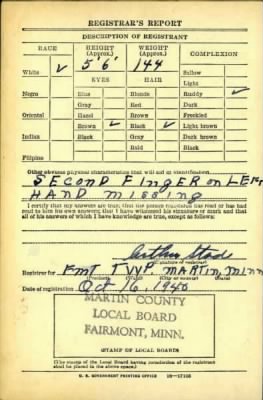 REGISTRAR'S REPORT
DESCRIPTION OF REGISTRANT
RACE HEIGHT (Approx.) WEIGHT (Approx.) COMPLEXION
White ✓ 5' 6" 144 Sallow
EYES HAIR Light
Negro Blue Blonde Ruddy ✓
Gray Red Dark
Oriental Hazel Brown Freckled
Brown ✓ Black ✓ Light brown
Indian Black Gray Dark brown
Bald Black
Filipino
Other obvious physical characteristics that will aid in identification
SECOND FINGER ON LEFT
HAND MISSING
I certify that my answers are true; that the person registered has read or has
had read to him his own answers; that I have witnessed his signature or mark and that
all of his answers of which I have knowledge are true, except as follows:
Arthur
(Signature of registrar)
Registrar for FMT TWP. MARTIN, MINN
Date of registration Oct 16, 1940
MARTIN COUNTY
LOCAL BOARD
FAIRMONT, MINN.
(STAMP OF LOCAL BOARD)
(The stamp of the Local Board having jurisdiction of the registrant
shall be placed in the above space.)
U. S. GOVERNMENT PRINTING OFFICE